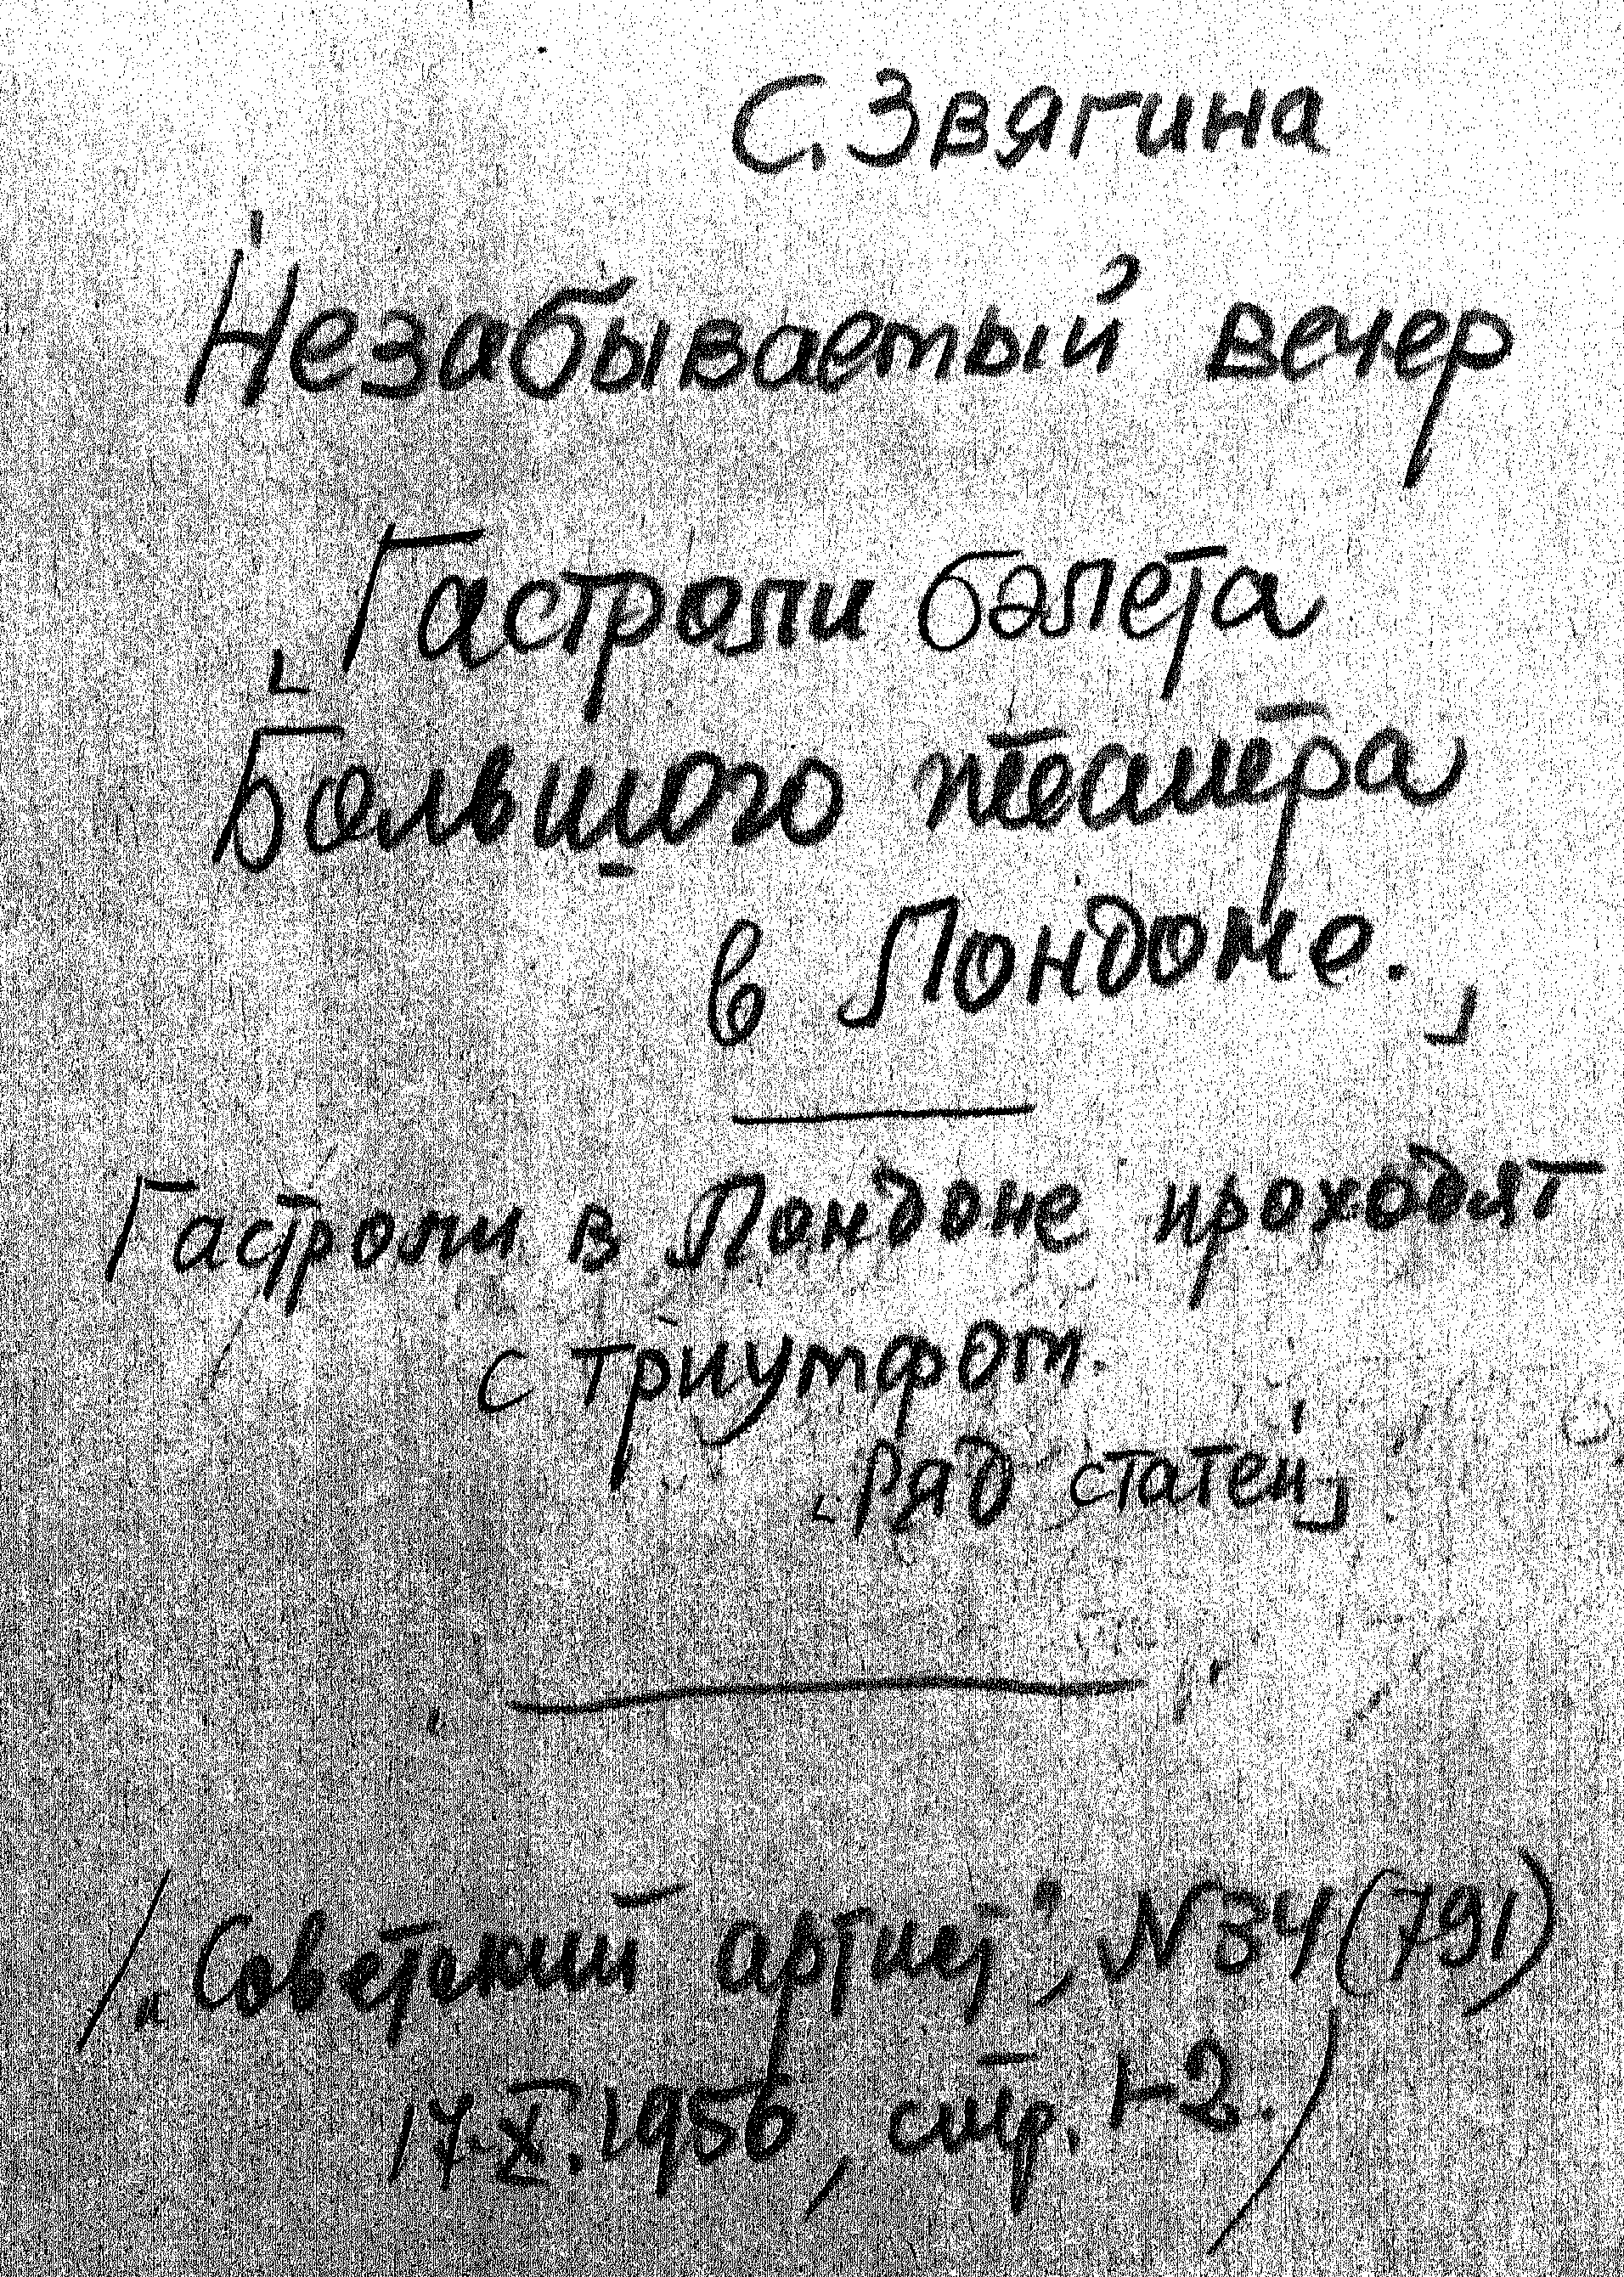 С. Звягина
Незабываемый вечер
[Гастроли балета
Большого театра
в Лондоне.]
Гастроли в Лондоне проходят
с триумфом.
[Ряд статей]
/„Советский артист", N 34 (791)
17.X.1956, стр. 1-2.)